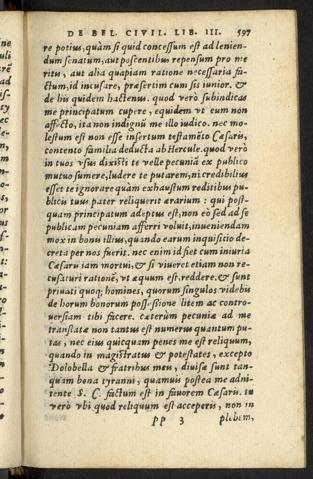 DE BEL. CIVIL. LIB. III. 597
re potius, quàm si quid concessum est ad lenien-
dum senatum, aut poscentibus repensum pro me
ritis, aut alia quapiam ratione necessaria fa-
ctum, id incusare, præsertim cum sis iunior. &
de his quidem hactenus. quod verò subindicas
me principatum cupere, equidem vt eum non
affecto, ita non indignũ me illo iudico. nec mo-
lestum est non esse insertum testamẽto Cæsaris,
contento familia deducta ab Hercule. quod verò
in tuos vsus dixisti te velle pecuniã ex publico
mutuo sumere, ludere te putarem, ni credibilius
esset te ignorare quàm exhaustum reditibus pu-
blicis tuus pater reliquerit ærarium : qui post-
quam principatum adeptus est, non eò sed ad se
publicam pecuniam afferri voluit, inueniendam
mox in bonis illius, quando earum inquisitio de-
creta per nos fuerit. nec enim id fiet cum iniuria
Cæsaris iam mortui, & si viueret etiam non re-
cusaturi rationẽ, vt æquum est, reddere. & sunt
priuati quoq; homines, quorum singulos videbis
de horum bonorum possessione litem ac contro-
uersiam tibi facere. cæterùm pecuniæ ad me
translatæ non tantus est numerus quantum pu-
tas, nec eius quicquam penes me est reliquum,
quando in magistratus & potestates, excepto
Dolobella & fratribus meis, diuisæ sunt tan-
quàm bona tyranni, quamuis postea me adni-
tente S. C. factum est in fauorem Cæsaris. tu
verò vbi quod reliquum est acceperis, non in
PP 3 plebem,